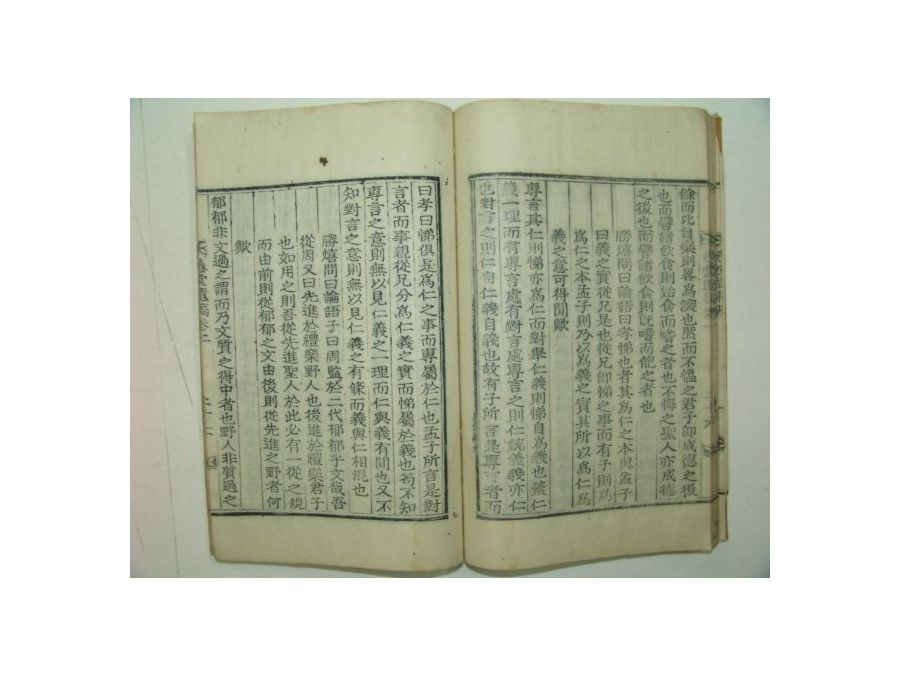 餘而比自樂則畧爲淺也然而不慍之君子卽成德之後
也而譬諸飮食則始食而嗜之者也不悔之聖人亦成德
之後也而譬諸飮食則旣嗜而飽之者也
勝熺問曰論語曰孝悌也者其爲仁之本與孟子
曰義之實從兄是也從兄卽悌之事而有子則爲
爲仁之本孟子則乃以爲義之實其所以爲仁爲
義之意可得聞歟
專言其仁則悌亦爲仁而對舉仁義則悌自爲義也蓋仁
義一理而有專言處有對言處專言之則仁統義義亦仁
也對言之則仁自仁義自義也故有子所言是專言者而
曰孝曰悌俱是爲仁之事而專屬於仁也孟子所言是對
言者而事親從兄分爲仁義之實而悌屬於義也苟不知
專言之意則無以見仁義之一理而仁與義有間也又不
知對言之意則無以見仁義之有條而義與仁相混也
勝熺問曰論語子曰周監於二代郁郁乎文哉吾
從周又曰先進於禮樂野人也後進於禮樂君子
也如用之則吾從先進聖人於此必有一從之規
而由前則從郁郁之文由後則從先進之野者何
歟
郁郁非文過之謂而乃文質之得中者也野人非質過之
堂遺稿卷二